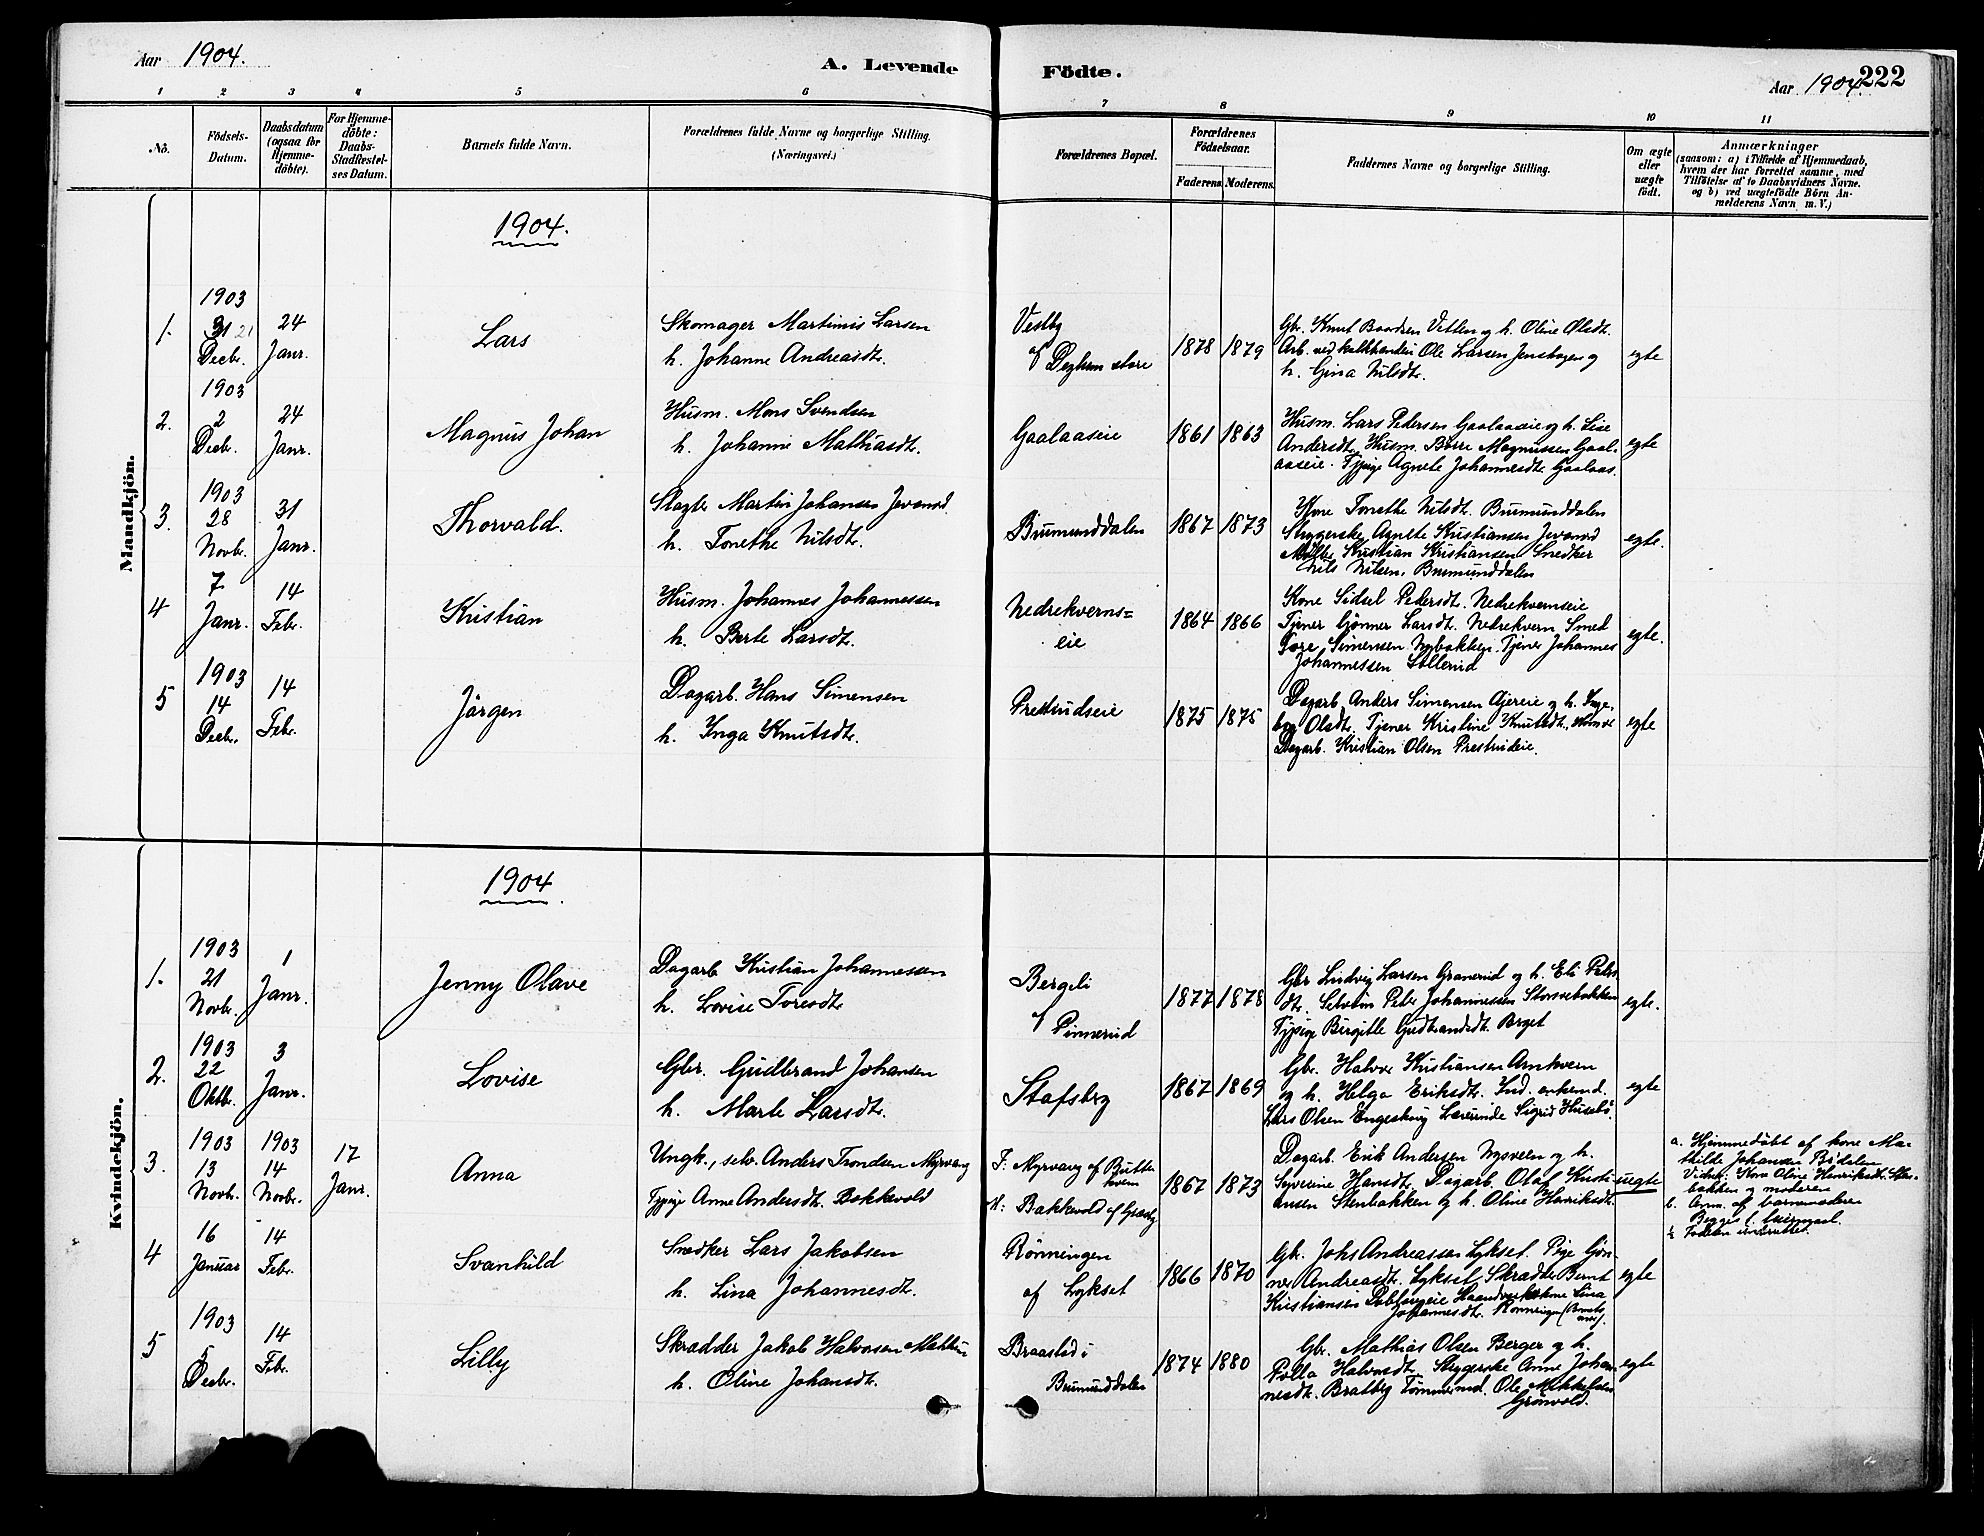 Aar 1904.
A. Levende
Födte.
Aar 1904.
222
1 2 3 4 5 6 7 8 9 10 11
No.
Födsels-Datum.
Daabsdatum (ogsaa for Hjemme-döbte).
For Hjemme-döbte: Daabs-Stadfæstel-ses Datum.
Barnets fulde Navn.
Forældrenes fulde Navne og borgerlige Stilling. (Næringsvei.)
Forældrenes Bopæl.
Forældrenes Födselsaar.
Faderens. Moderens.
Faddernes Navne og borgerlige Stilling.
Om ægte eller uægte födt.
Anmærkninger
(saasom: a) i Tilfælde af Hjemmedaab,
hvem der har forrettet samme, med
Tilföielse af to Daabsvidners Navne.
og b) ved uægtefödte Börn An-
melderens Navn m. V.)
Mandkjön.
1904.
1903
1. 31 21 Decbr. 24 Janr. Lars
Skomager Martinus Larsen
h. Johanne Andreasdt.
Vestby
af Deglum store
1878 1879
Gbr. Knut Baardsen Vetten og h. Oline Olsdt.
Arb. ved kalkbænderi Ole Larsen Jenshagen og
h. Gina Nilsdt.
egte
1903
2. 2 Decbr. 24 Janr. Magnus Johan
Husm. Mons Svendsen
h. Johanne Mathiasdt.
Gaalaaseie
1861 1863
Husm. Lars Pedersen Gaalaaseie og h. Lise
Andersdt. Husm. Børre Magnussen Gaal-
aaseie. Tjpige Agnete Johannesdt. Gaalaas.
egte
1903
3. 28 Novbr. 31 Janr. Thorvald.
Slagter Martin Johansen Jevanord
h. Tonethe Nilsdt.
Brumunddalen
1867 1873
Kone Tonethe Nilsdt. Brumunddalen
Strygerske Agnete Kristiansen Jevanord
Møller Kristian Kristiansen Snedker
Nils Nilsen, Brumunddalen
egte.
4 7 Janr. 14 Febr. Kristian
Husm. Johannes Johannessen
h. Berte Larsdt.
Nedrekverns=
eie
1864 1866
Kone Sidsel Pedersdt. Nedrekvernseie
Tjener Gønner Larsdt. Nedrekvern Smed
Tore Simensen Nybakken. Tjener Johannes
Johannessen Sollerud
egte.
1903
5 14 Decbr. 14 Febr. Jörgen
Dagarb. Hans Simensen
h. Inga Knutsdt.
Prestrudseie
1875 1875
Dagarb. Anders Simensen Ajereie og h. Inge-
borg Olsdt. Tjener Kristine Knutsdt.
Dagarb. Kristian Olsen Prestrudeie.
egte
Kvindekjön.
1904.
1903
1. 21 Novbr. 1 Janr. Jenny Olave
Dagarb Kristian Johannessen
h. Lovise Toresdt.
Bergeli
af Pinnerud
1877 1878
Gbr Ludvig Larsen Granerud og h. Eli Peders
dt. Selveier Peter Johannessen Storsvebakken
Tjpige Birgitte Gudbrandsdt. Berget
egte.
1903
2. 22 Oktbr. 3 Janr. Lovise
Gbr. Gudbrand Johansen
h. Marte Larsdt.
Stafsberg
1867 1869
Gbr. Halvor Kristiansen Arnkvern
og h. Helga Eriksdt. Ind. ankomd.
Lars Olsen Engeskaug Lærerinde Sigrid Husebö.
egte
1903 1903
3. 13 Novbr. 14 Novbr. 17 Janr. Anna
Ungk., selv. Anders Trondsen Myrvang
Tjpige Anne Andersdt. Bakkevold
F: Myrvang af Butte
kvern
M: Bakkevold af Græsby
1867 1873
Dagarb. Erik Andersen Nysveen og h.
Syverine Hansdt. Dagarb. Olaf Kristi-
ansen Stenbakken og h. Oline Henriksdt.
uegte
a. Hjemmedöbt af kone Ma-
thilde Johansen Bödalen
Vidner: Kone Oline Henriksdt. Sten-
bakken og moderen
b. Anm. af barnemoderen
Begges 1. leiermaal.
Faderen underrettet.
4 16 Januar 14 Febr. Svanhild
Snedker Lars Jakobsen
h. Lina Johannesdt.
Rønningen
af Lykset
1866 1870
Gbr. Johs Andreassen Lykset. Pige Gøn-
ner Andreasdt. Lykset Skrædder Bernt
Kristiansen Doblougeie Haandverkerkone Lina
Johannesdt. Rønningen
egte
1903
5 5 Decbr. 14 Febr. Lilly
Skrædder Jakob Halvorsen
h. Oline Johansdt.
Braastad i
Brumunddalen
1874 1880
Gbr. Mathias Olsen Berger og h.
Halvorsdt. Strygerske Anne Johan-
nesdt. Bratberg Tømmermd. Ole Mikkelsen
Grönvold.
egte